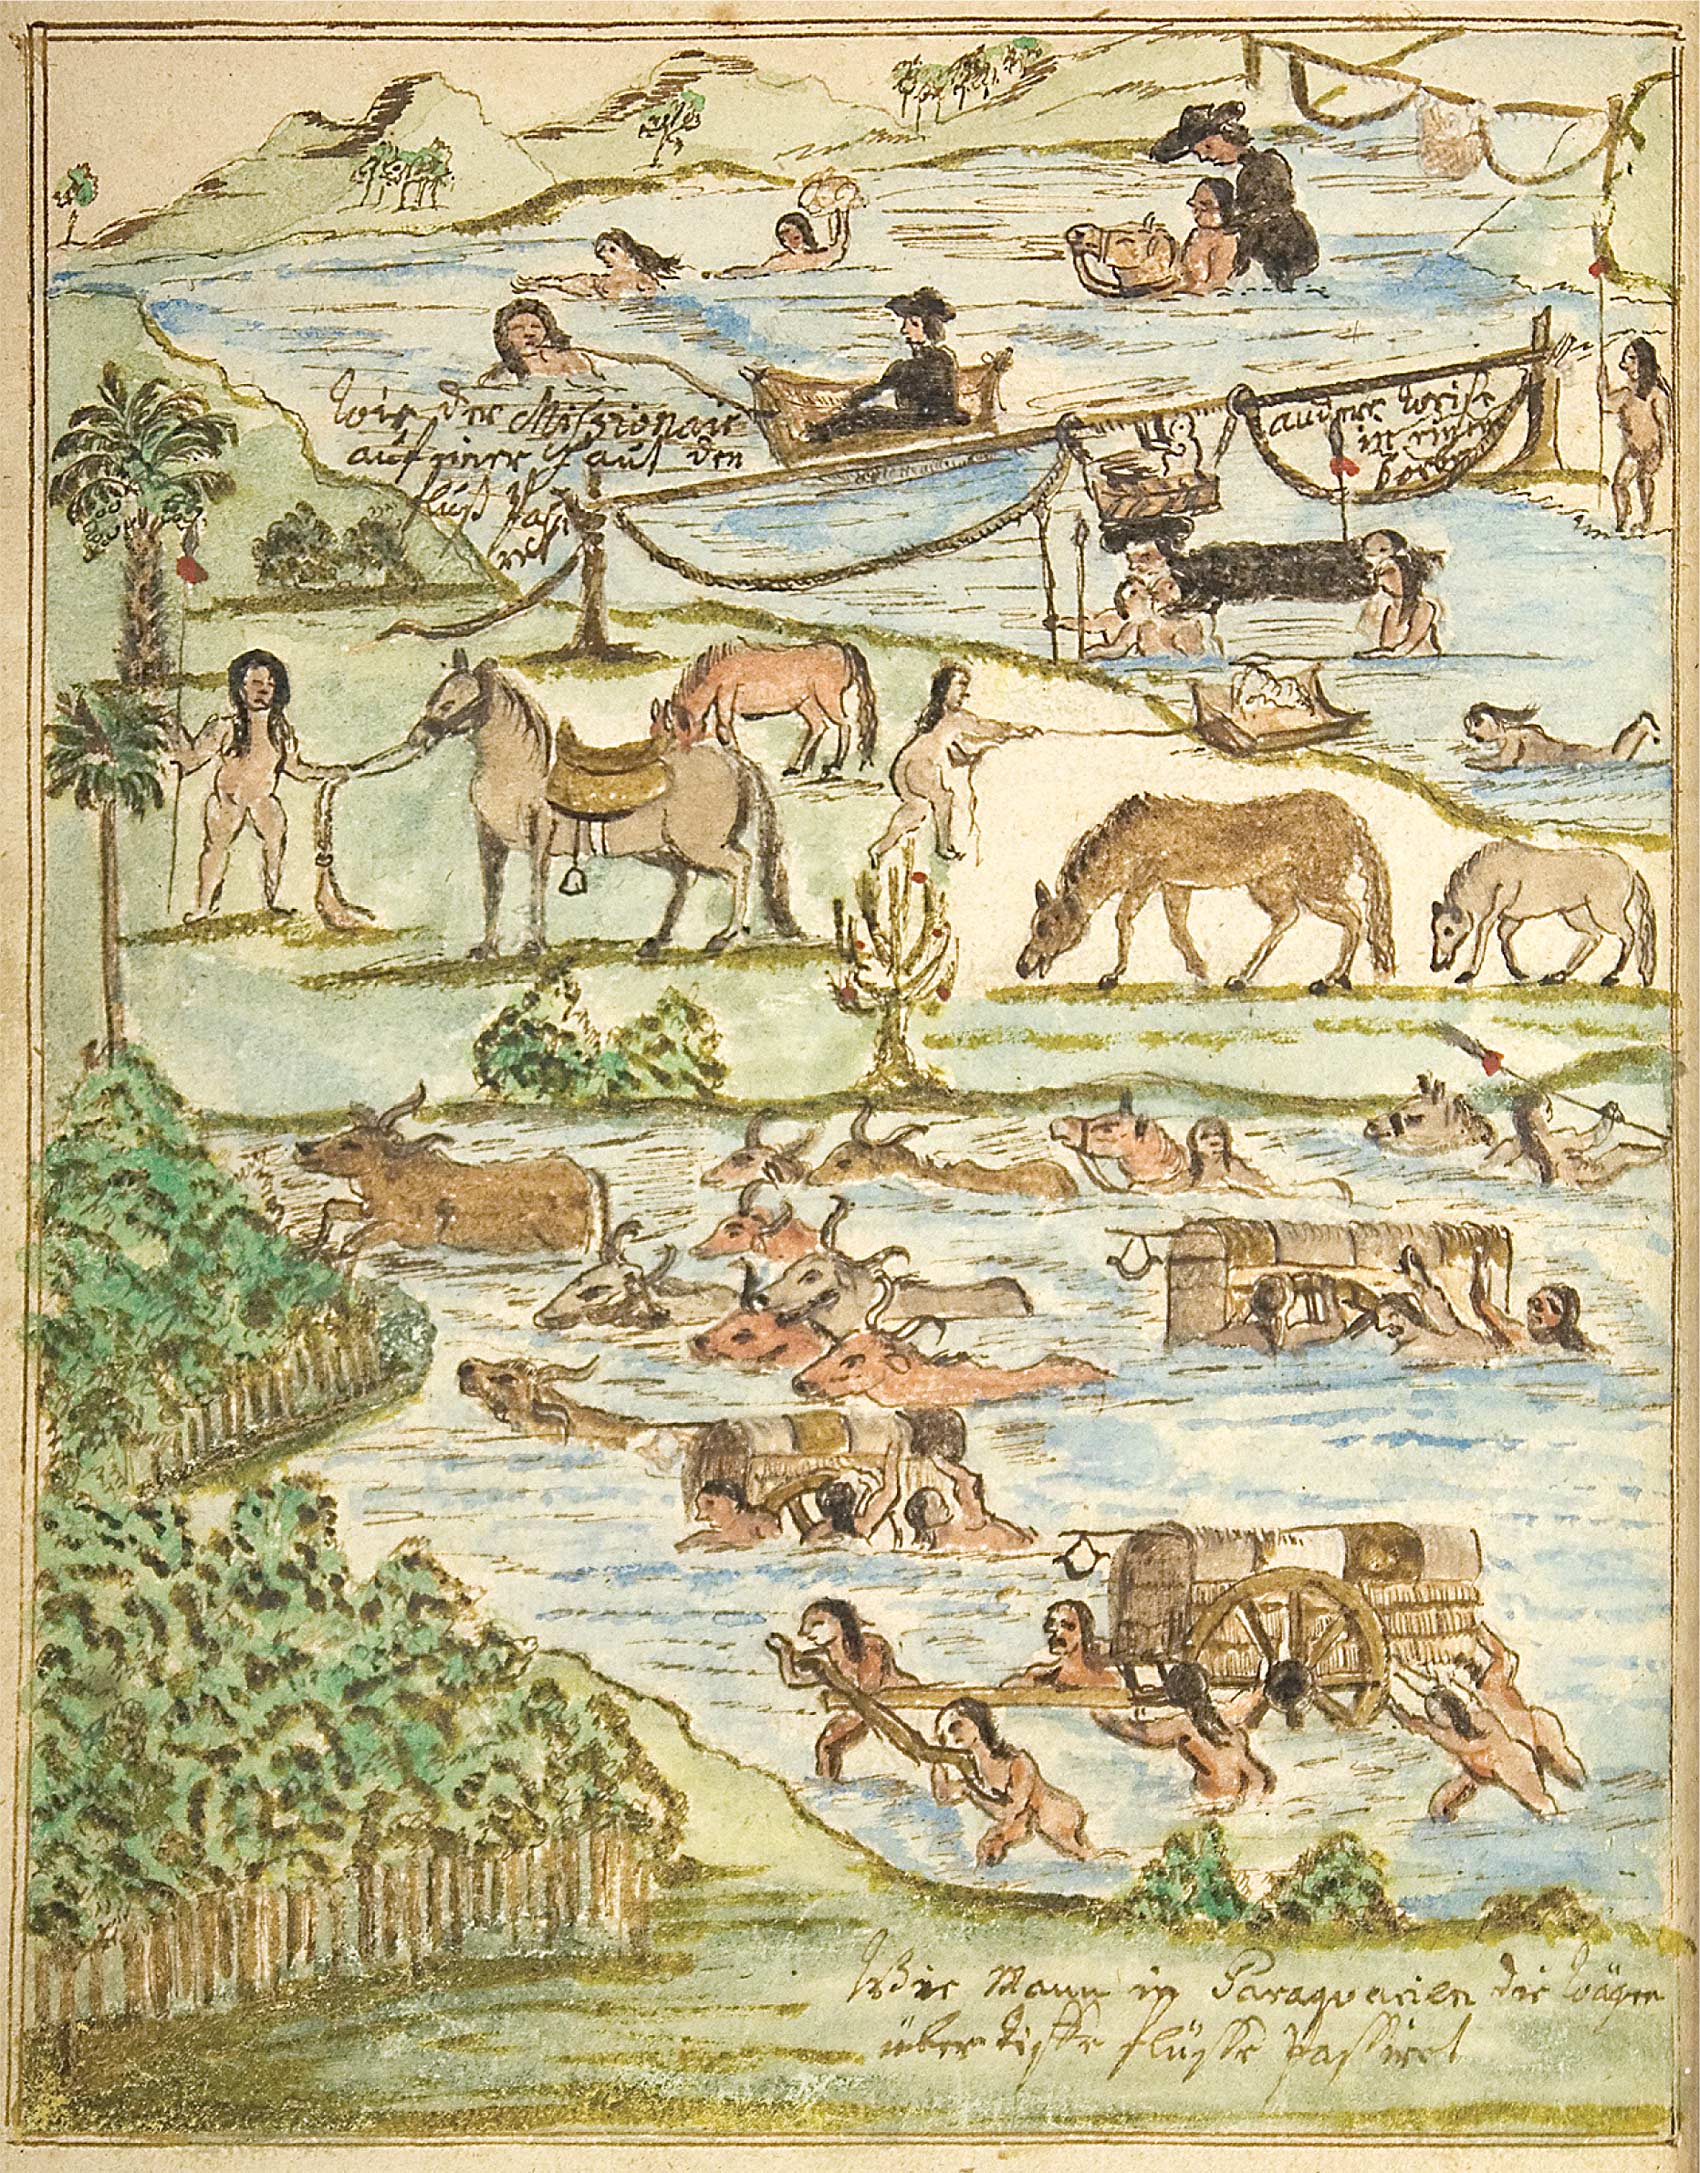 Wie der Missionair
auf einer Haut den
fluß passi
ret
andere Weise
in einem
korb
Wie Mann in Paraquarien die Wägen
über tieffe flüsse passiret